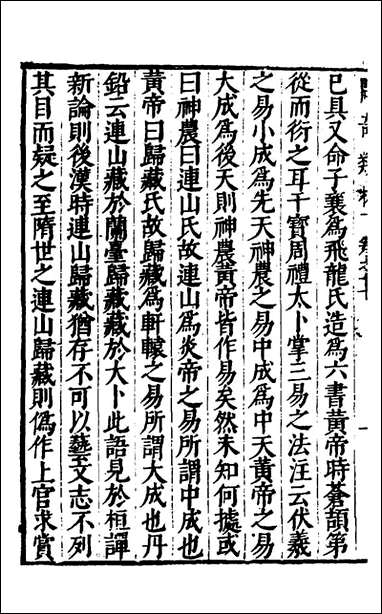 已具又命子襄爲飛龍氏造爲六書黃帝時蒼頡第
從而衍之耳干寶周禮太卜掌三易之法注云伏羲
之易小成爲先天神農之易中成爲中天黃帝之易
大成爲後天則神農黃帝皆作易矣然未知何據或
曰神農曰連山氏故連山爲炎帝之易所謂中成也
黃帝曰歸藏氏故歸藏爲軒轅之易所謂大成也丹
鉛云連山藏於蘭臺歸藏藏於大卜此語見於桓譚
新論則後漢時連山歸藏猶存不可以藝文志不列
其目而疑之至隋世之連山歸藏則僞作上官求賞